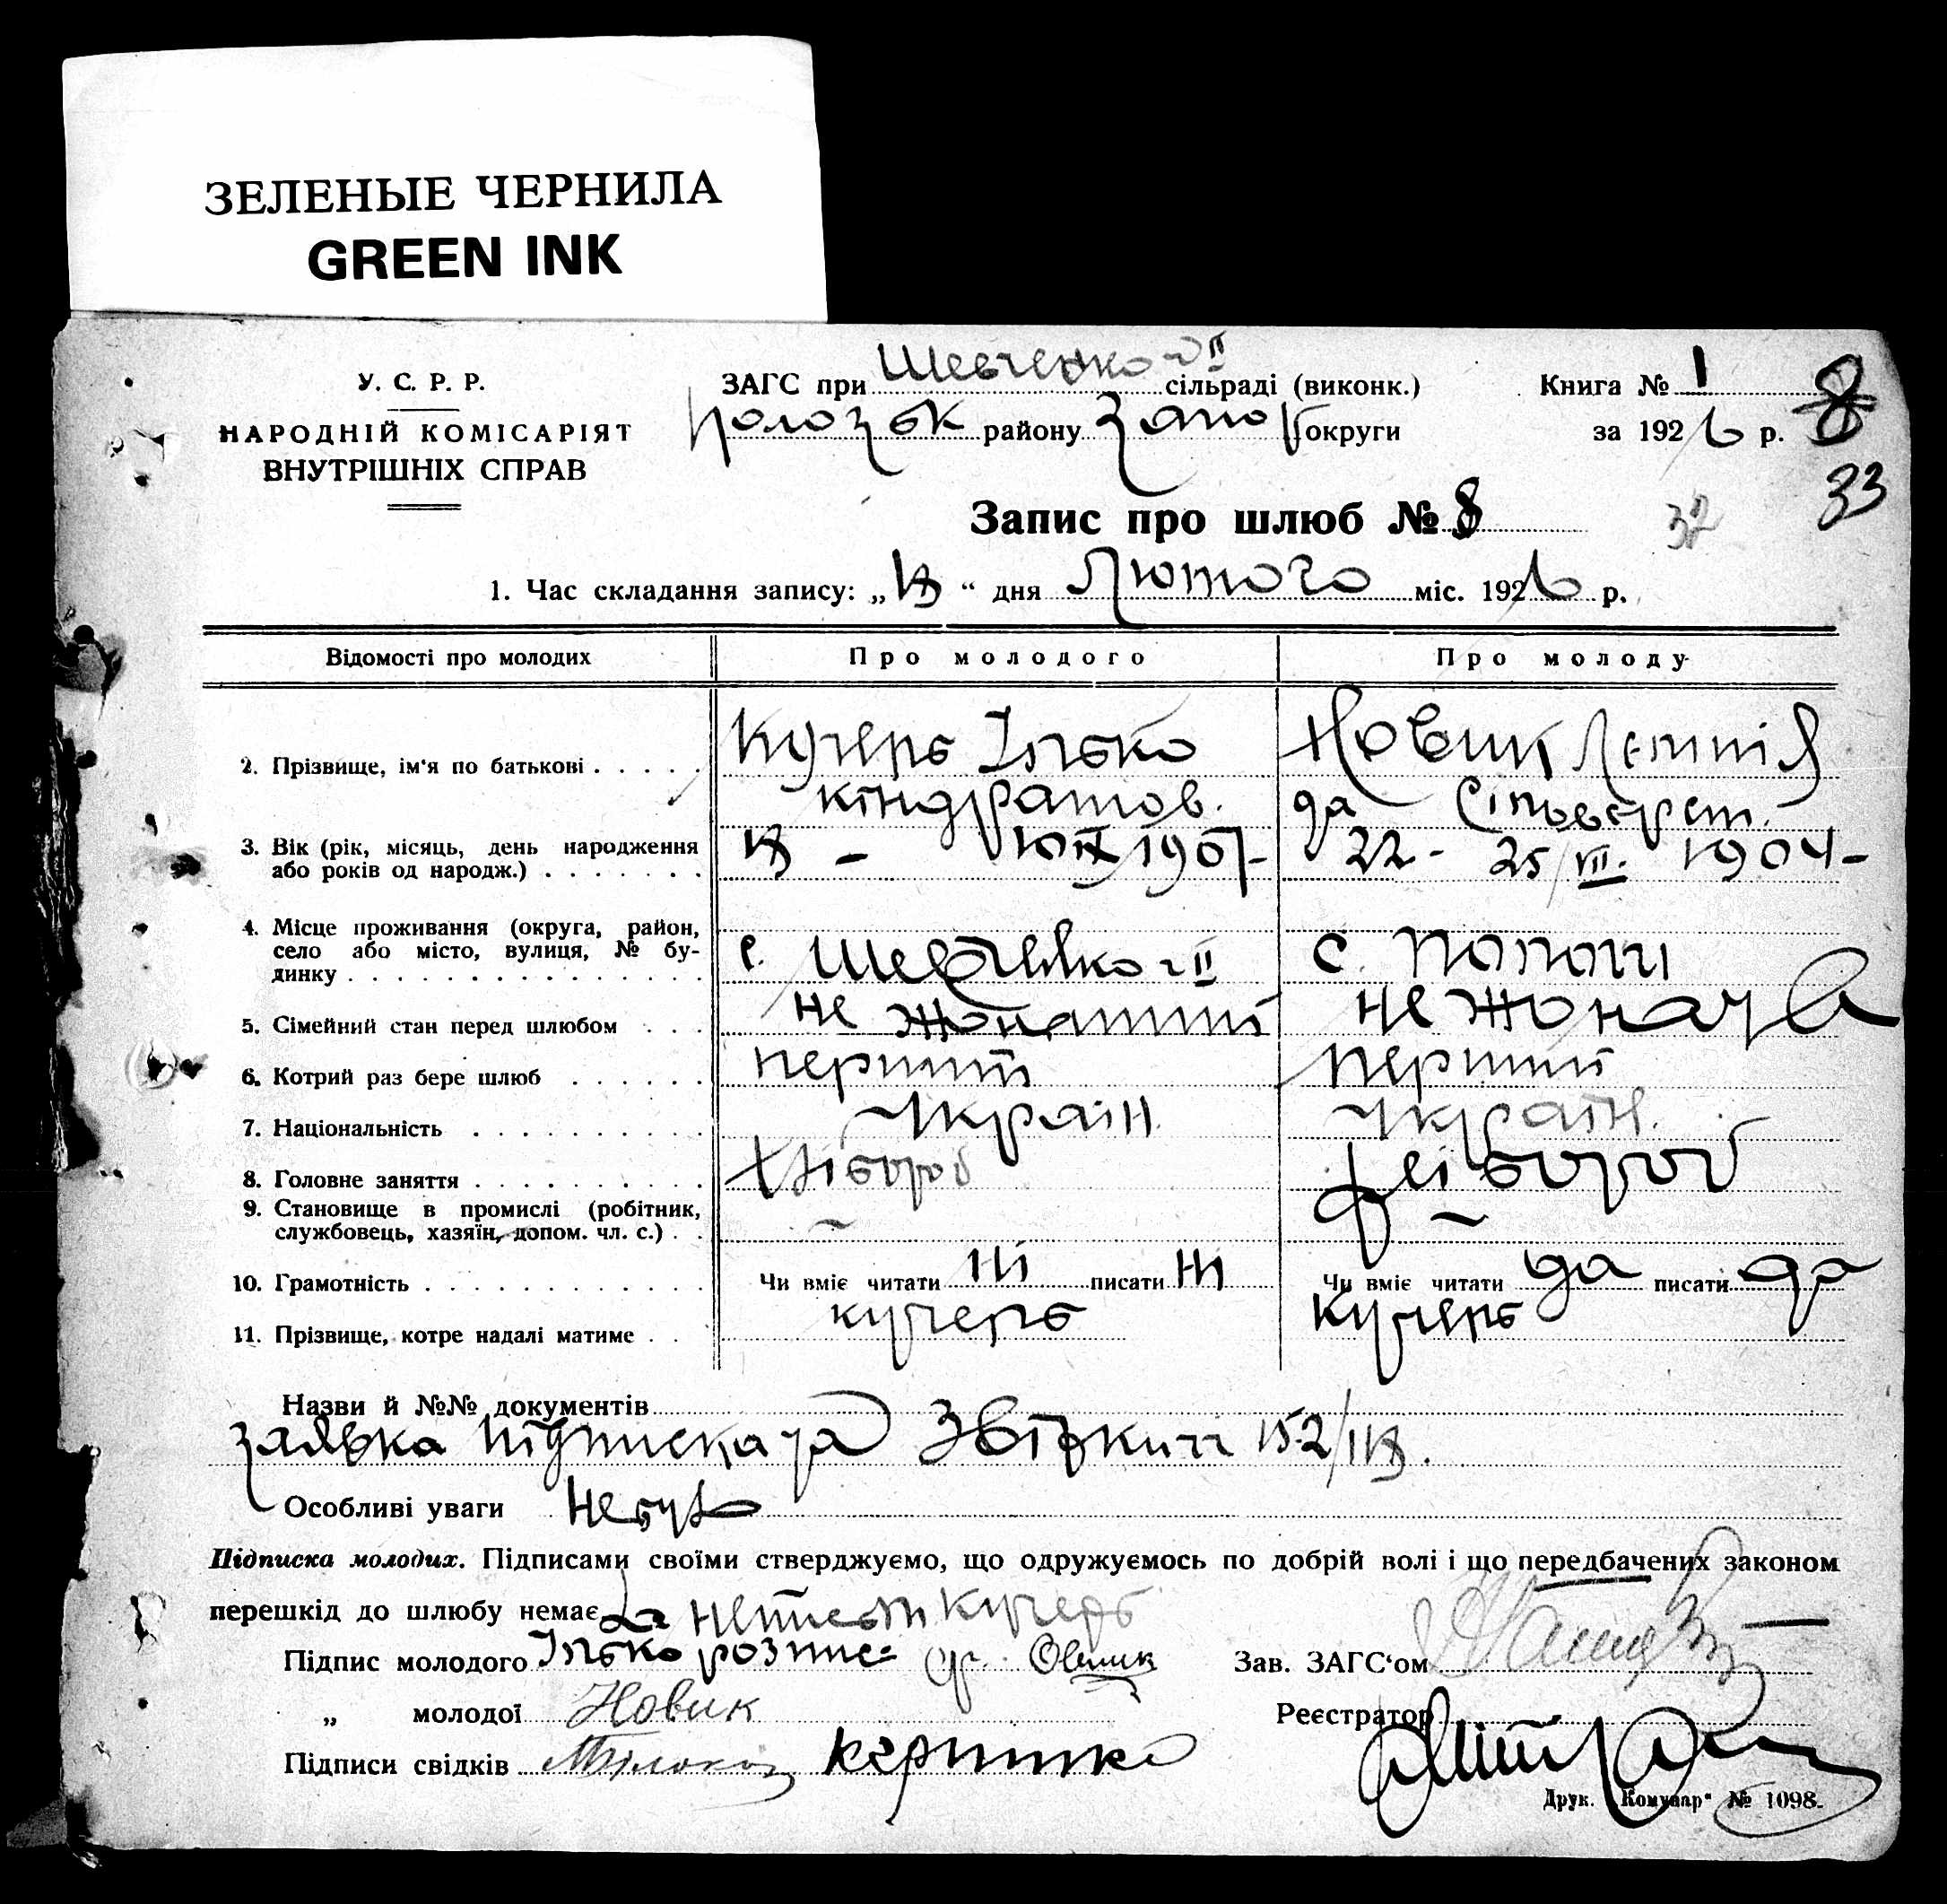 ЗЕЛЕНЫЕ ЧЕРНИЛА
GREEN INK
У. С. Р. Р.
НАРОДНІЙ КОМІСАРІЯТ
ВНУТРІШНІХ СПРАВ
ЗАГС при Шевченко II сільраді (виконк.)
Полозьк району Запор округи
Книга № 1 8
за 1926 р.
33
32
Запис про шлюб № 8
1. Час складання запису: „18“ дня Лютого міс. 1926 р.
Відомості про молодих Про молодого Про молоду
2. Прізвище, ім'я по батькові . . . . . Кучерь Ілько Новик
кіндратов. Сільверст.
3. Вік (рік, місяць, день народження
або років од народж.) . . . . . . . 18 – 1907 - 22 - 25/VII. 1904 -
4. Місце проживання (округа, район,
село або місто, вулиця, № бу-
динку . . . . . . . . . . . . . . . с. Шевченко II с. Пологи
5. Сімейний стан перед шлюбом . . . не жонатий не жоната
6. Котрий раз бере шлюб . . . . . . перший перший
7. Національність . . . . . . . . . . Україн. Україн.
8. Головне заняття . . . . . . . . . . Хлібороб хлібороб
9. Становище в промислі (робітник,
службовець, хазяїн, допом. чл. с.) . . ~ ~
10. Грамотність . . . . . . . . . . . . Чи вміє читати ні писати ні Чи вміє читати да писати да
11. Прізвище, котре надалі матиме . . кучерь Кучерь
Назви й №№ документів
заявка підписка та 152/
Особливі уваги Небуло
Підписка молодих. Підписами своїми стверджуємо, що одружуємось по добрій волі і що передбачених законом
перешкід до шлюбу немає За Кучерь
Підпис молодого Ілько розпис
„ молодої Новик
Підписи свідків
Зав. ЗАГС'ом
Реєстратор
Друк. „Комунар“ № 1098.